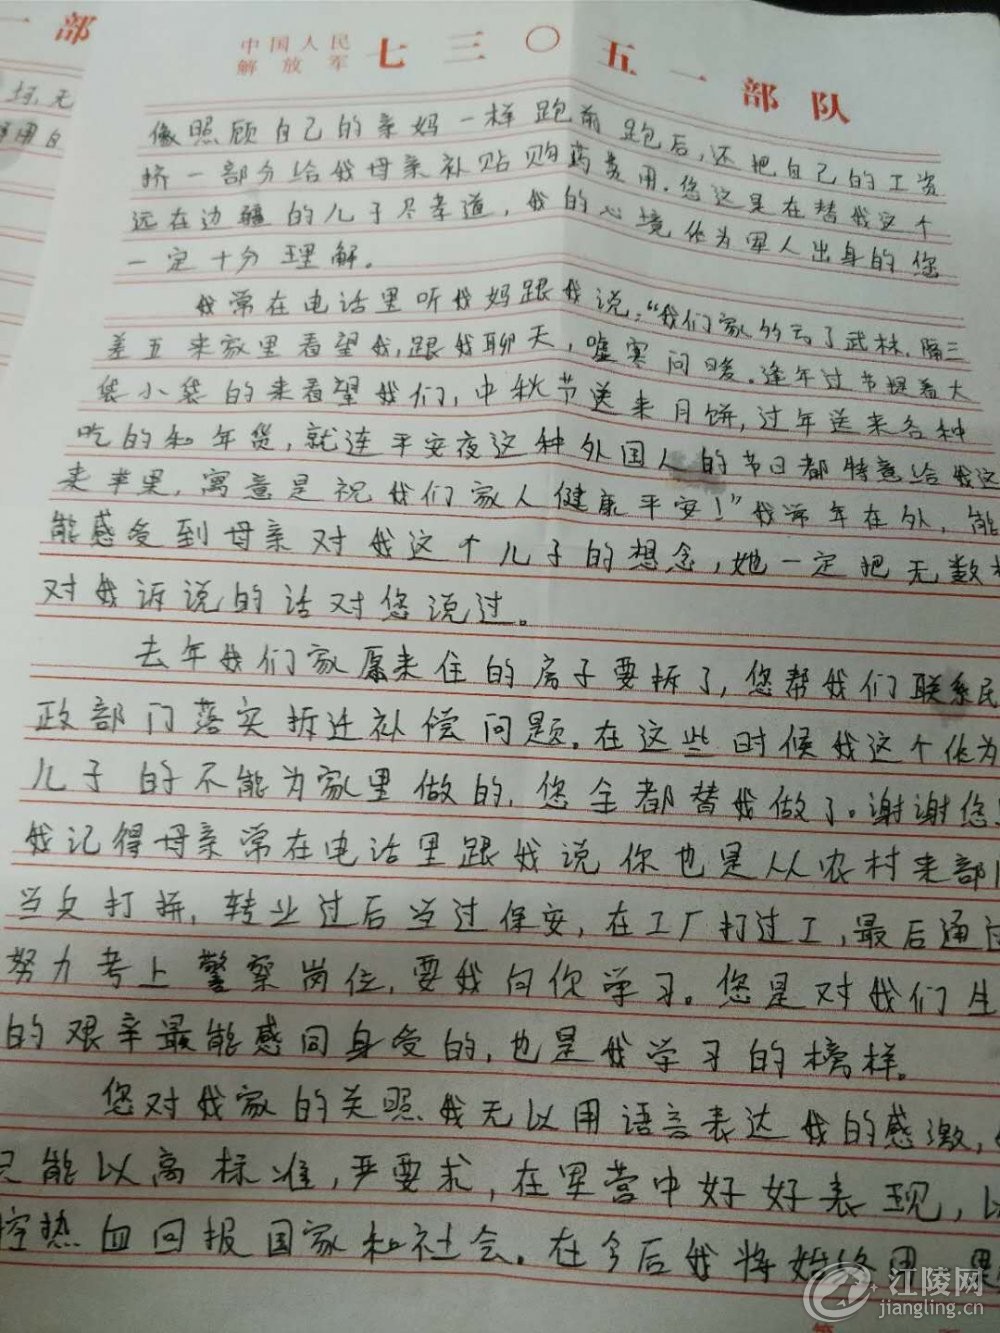 一部
坏无
用自
中国人民
解放军 七三〇五一部队
像照顾自己的亲妈一样跑前跑后,还把自己的工资
挤一部分给我母亲补贴购药费用。您这是在替我这个
远在边疆的儿子尽孝道,我的心境作为军人出身的您
一定十分理解。
我常在电话里听我妈跟我说:“我们家多亏了武林,隔三
差五来家里看望我,跟我聊天,嘘寒问暖。逢年过节提着大
袋小袋的来看望我们,中秋节送来月饼,过年送来各种
吃的和年货,就连平安夜这种外国人的节日都特意给我送
来苹果,寓意是祝我们家人健康平安!”我常年在外,能
能感受到母亲对我这个儿子的想念,她一定把无数
对我诉说的话对您说过。
去年我们家原来住的房子要拆了,您帮我们联系民
政部门落实拆迁补偿问题。在这些时候我这个作为
儿子的不能为家里做的,您全都替我做了。谢谢您
我记得母亲常在电话里跟我说你也是从农村来部队
当兵打拼,转业过后当过保安,在工厂打过工,最后通过
努力考上警察岗位,要我向你学习。您是对我们生
的艰辛最能感同身受的,也是我学习的榜样。
您对我家的关照我无以用语言表达我的感激,
只能以高标准,严要求,在军营中好好表现,以
腔热血回报国家和社会。在今后我将始终用
江陵网
jiangling.cn
第